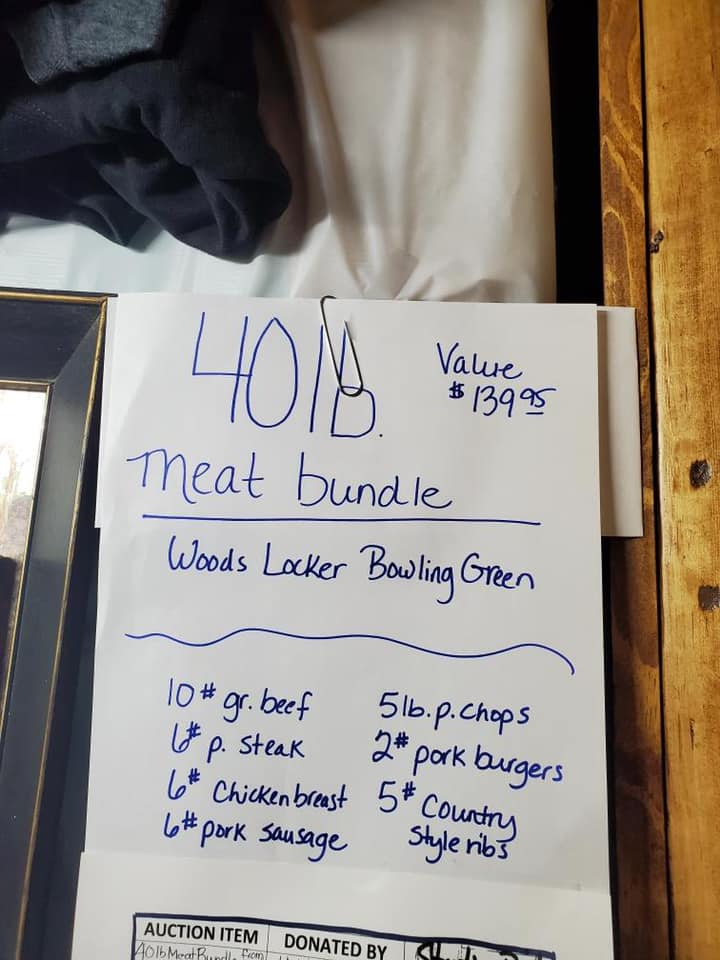 40 lb.
Value
$139 95
meat bundle
Woods Locker Bowling Green
10# gr. beef
6# p. steak
6# Chicken breast
6# pork sausage
5 lb. p. chops
2# pork burgers
5# Country
Style ribs
AUCTION ITEM
DONATED BY
40 lb Meat Bundle from